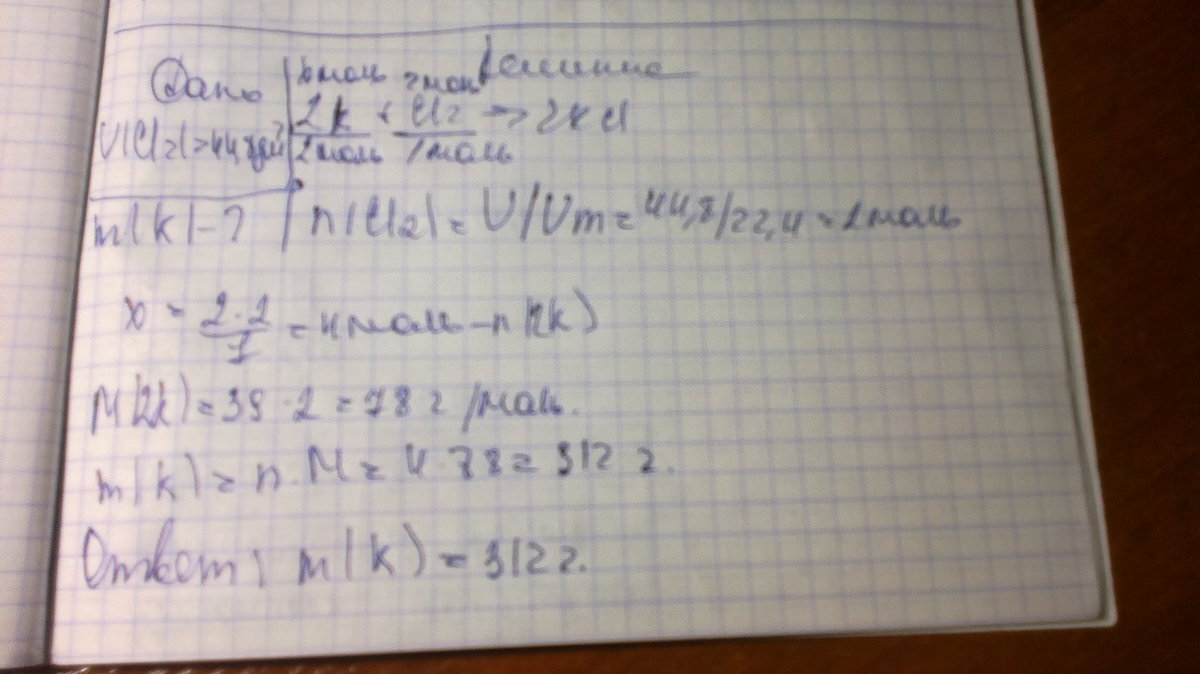 Дано
х моль 2 моль Решение
2K + Cl2 -> 2KCl
V(Cl2)=44,8 дм³
2 моль 1 моль
m(K)-? n(Cl2)= V/Vm = 44,8/22,4 = 2 моль
x = 2·2/1 = 4 моль - n(2K)
M(2K) = 39·2 = 78 г/моль.
m(K) = n·M = 4·78 = 312 г.
Ответ: m(K) = 312 г.